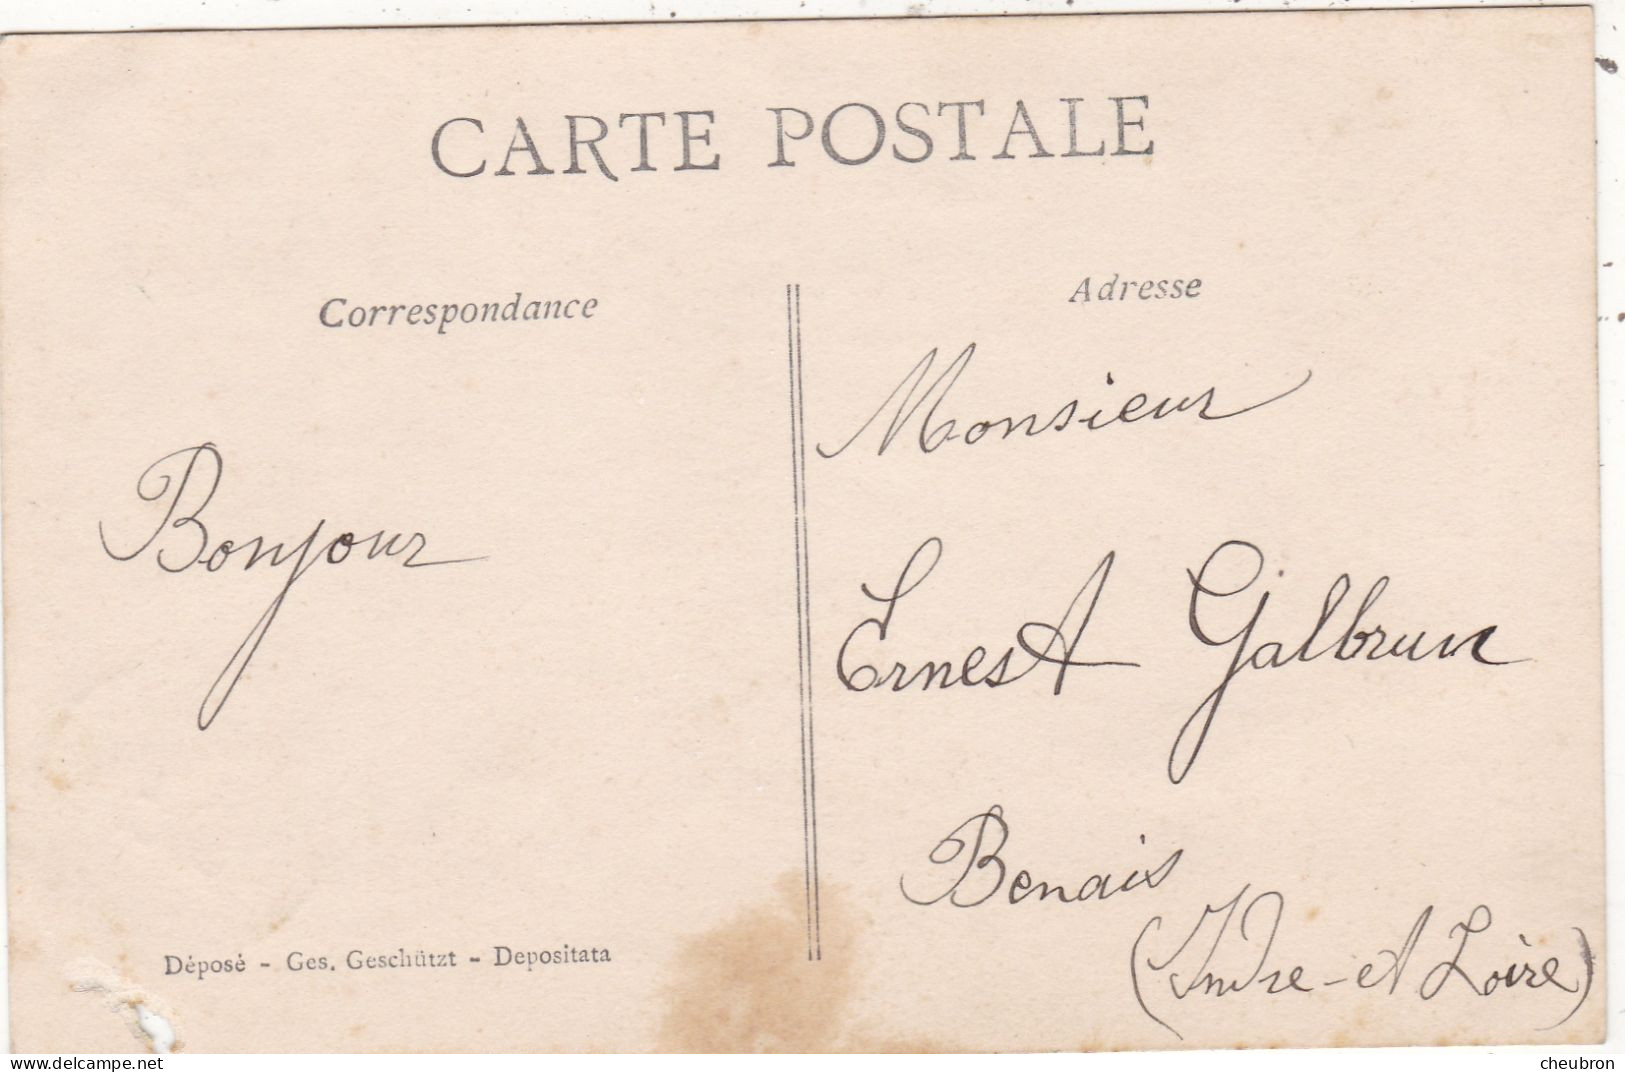 CARTE POSTALE
Correspondance
Adresse
Bonjour
Monsieur
Ernest Galbrun
Benais
(Indre-et Loire)
Déposé - Ges. Geschützt - Depositata
delcampe.net
cheubron